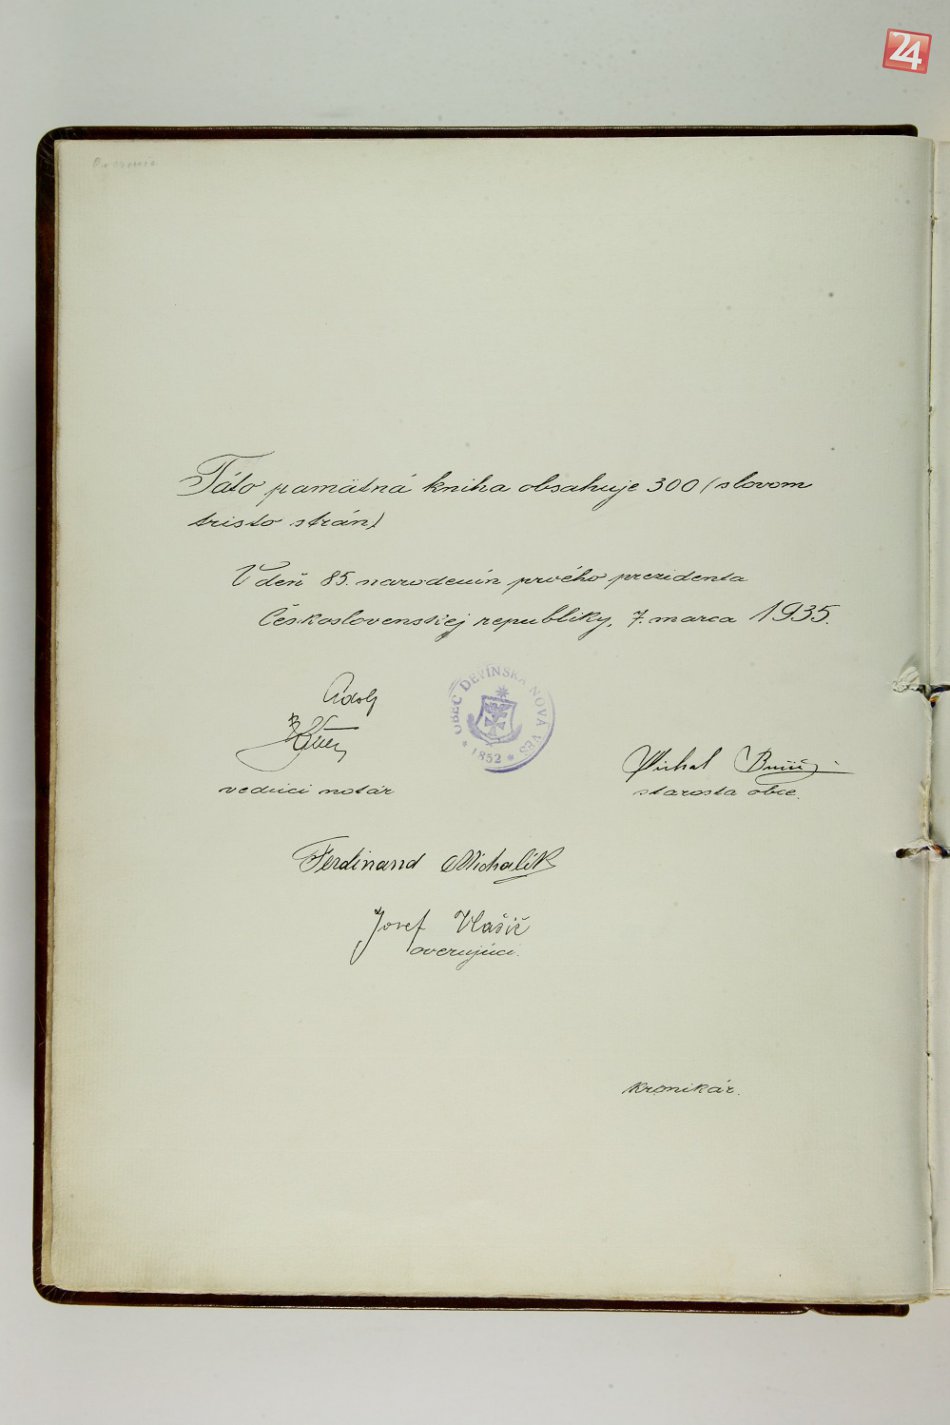 24
Táto pamätná kniha obsahuje 300 (slovom
tristo strán)
V deň 85. narodenín prvého prezidenta
Československej republiky, 7. marca 1935.
Adolf
OBEC DEVÍNSKA NOVÁ VES
* 1852 *
vedúci notár
Michal
starosta obce.
Ferdinand Michalík
Jozef Vlašič
overujúci.
kronikár.